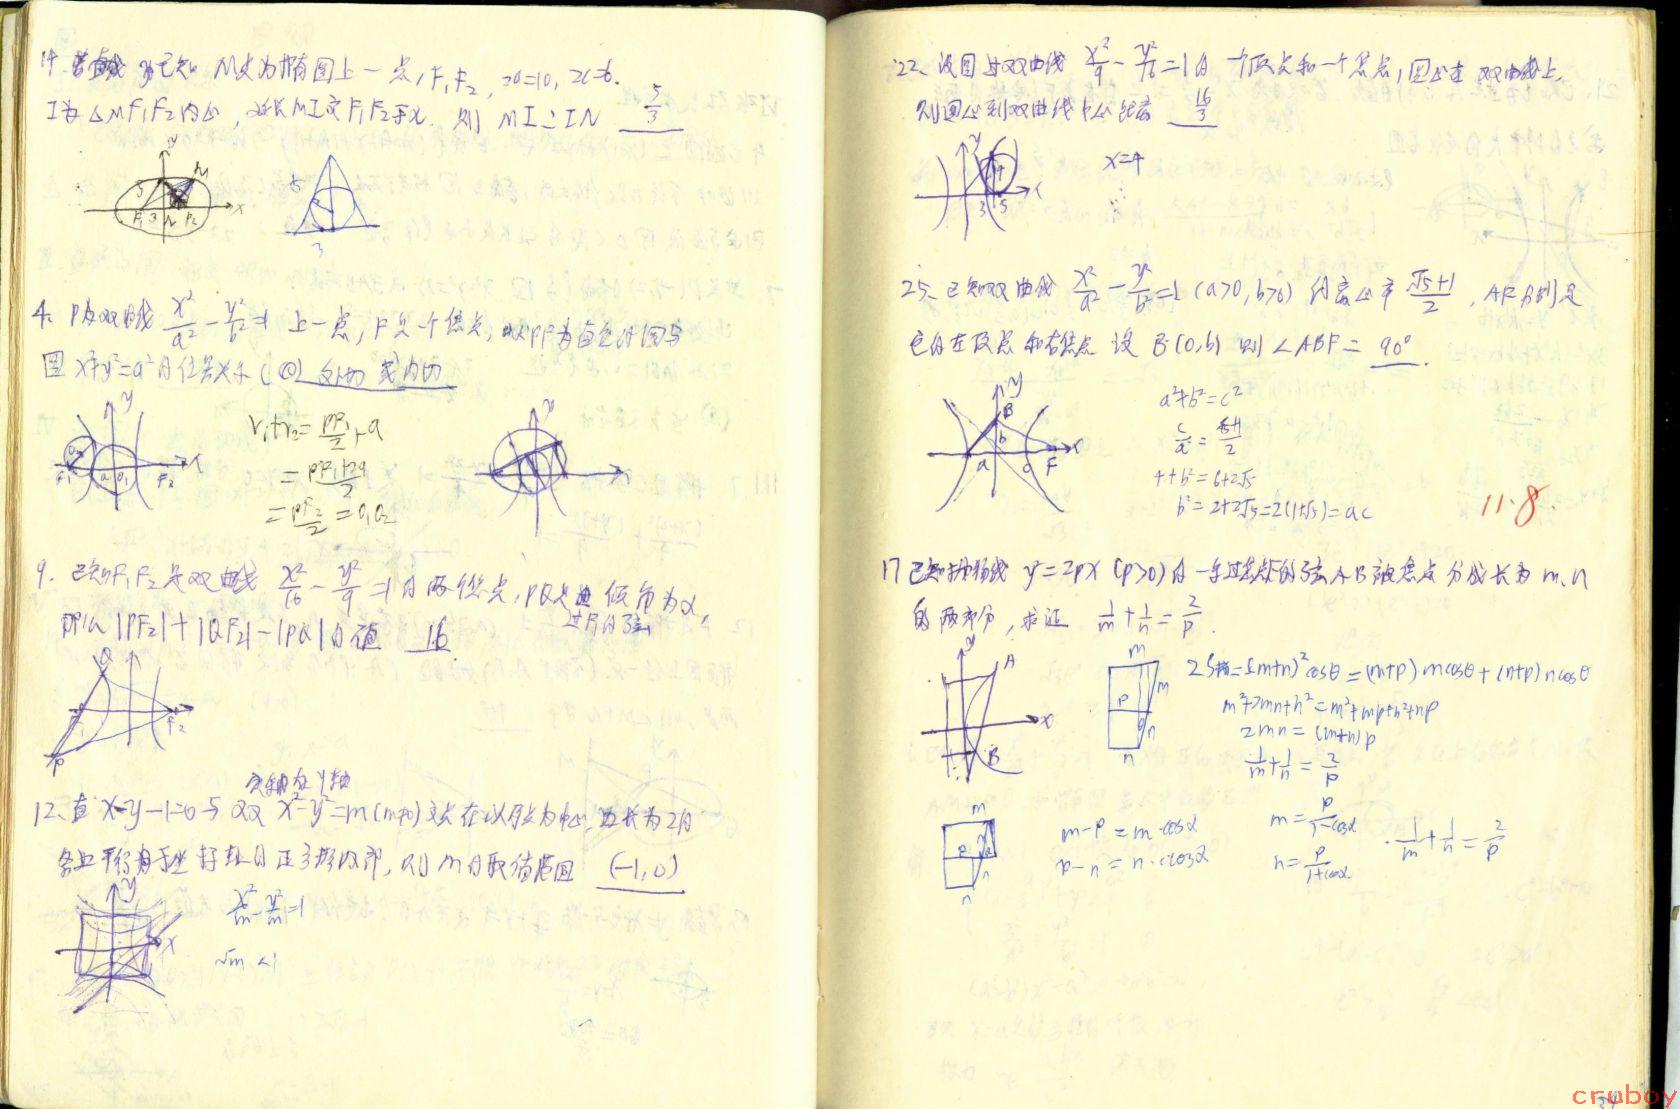 14. 已知 M点为椭圆上一点, F₁F₂, 2a=10, 2c=6.
I为△MF₁F₂内心, 延长MI交F₁F₂于N. 则 MI:IN 5/3
y
M
5
F₁ 3 N F₂ x
5
3
4. P为双曲线 x²/a² - y²/b² = 1 上一点, F是一个焦点, 以PF为直径的圆与
圆 x²+y²=a² 的位置关系 ( ) 外切 或 内切
y
F₁ a O₁ F₂ x
r₁+r₂ = PF₁/2 + a
= (PF₁+2a)/2
= PF₂/2 = O₁O₂
9. 已知F₁F₂是双曲线 x²/16 - y²/9 = 1 的两个焦点, PQ是 倾角为α,
过F₁的弦
那么 |PF₂|+|QF₂|-|PQ|的值 16
Q
F₁ F₂
P
实轴在y轴
12. 直 x-y-1=0与 双 x²-y²=m (m≠0) 交点在以原点为中心, 边长为2的
各边平行于坐标轴的正方形内部, 则 m的取值范围 (-1,0)
y
x
x²/m - y²/m = 1
√m <1
22. 设圆与双曲线 x²/9 - y²/16 = 1 的 一个顶点和一个焦点, 圆心在 双曲线上,
则圆心到双曲线中心距离 16/3
y
4
3 5 x
x=4
25. 已知双曲线 x²/a² - y²/b² = 1 (a>0, b>0) 的离心率 (√5+1)/2, A F分别是
它的左顶点和右焦点 设 B(0,b) 则 ∠ABF = 90°.
y
B
b
a c F x
a²+b²=c²
c/a = (√5+1)/2
4+b²=6+2√5
b²=2+2√5=2(1+√5)=ac
11.8.
17 已知抛物线 y²=2px (p>0) 的一条过焦点F的弦AB被焦点分成长为 m、n
的两部分, 求证 1/m + 1/n = 2/p.
y
A
x
B
m
m
p
θ n
n
2S梯=(m+n)²cosθ=(m+p)mcosθ+(n+p)ncosθ
m²+2mn+n²=m²+mp+n²+np
2mn=(m+n)p
1/m + 1/n = 2/p
m
p
n
n
m-p = m·cosα
p-n = n·cosα
m = p/(1-cosα)
n = p/(1+cosα)
∴ 1/m + 1/n = 2/p
cruboy